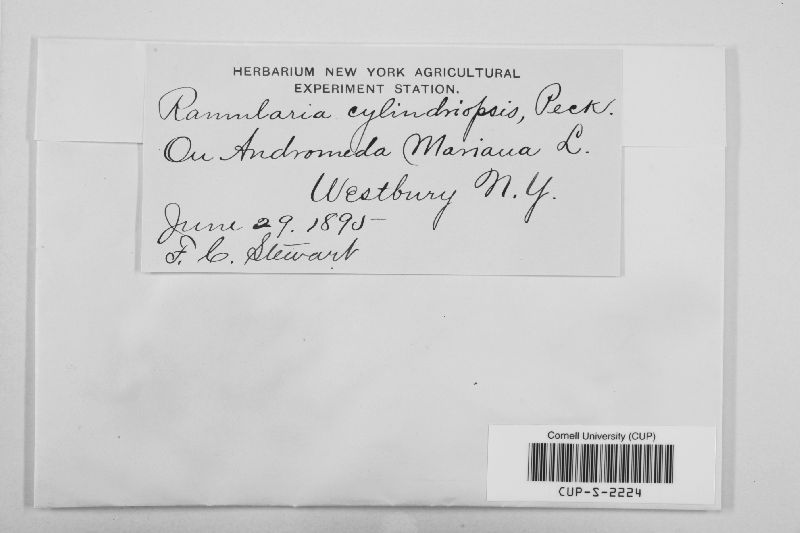 HERBARIUM NEW YORK AGRICULTURAL
EXPERIMENT STATION.
Ramularia cylindriopsis, Peck.
On Andromeda Mariana L.
Westbury N.Y.
June 29. 1895
F. C. Stewart
Cornell University (CUP)
CUP-S-2224